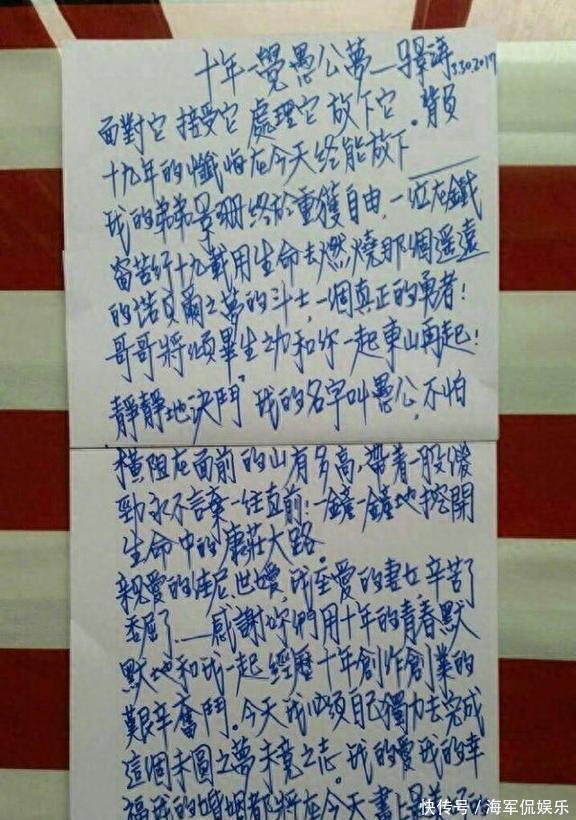 十年一覺愚公夢——驛濤 3.30.2017
面對它 接受它 處理它 放下它．背負
十九年的懺悔在今天终能放下——
我的弟弟景珊终於重獲自由，一位在鐵
窗苦行十九載用生命去燃燒那個遥遠
的诺貝爾之夢的斗士，一個真正的勇者！
哥哥將傾畢生之力和你一起東山再起！
靜靜地決鬥，我的名字叫愚公，不怕
橫阻在面前的山有多高，帶着一股傻
勁永不言棄一往直前！一鏟一鏟地挖開
生命中的康莊大路．
親愛的佳尼、世嬡，我至愛的妻女，辛苦了
委屈了——感謝妳們用十年的青春默
默地和我一起經歷十年創作創業的
艱辛奮鬥．今天我必須自己獨力去完成
這個未圓之夢未竟之志．我的愛我的幸
福我的婚姻都將在今天畫上
快传号／海军侃娱乐